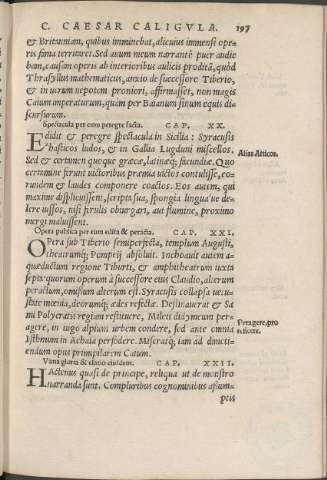 C. CAESAR CALIGVLA. 197
& Britanniam, quibus imminebat, alicuius immensi ope-
ris fama territaret. Sed auum meum narrantē puer audie-
bam, causam operis ab interioribus aulicis proditā, quòd
Thrasyllus mathematicus, anxio de successore Tiberio,
& in uerum nepotem proniori, affirmasset, non magis
Caium imperaturum, quàm per Baianum sinum equis di-
scursurum.
Spectacula per eum peregre facta. CAP. XX.
Edidit & peregre spectacula in Sicilia: Syracusis
hasticos ludos, & in Gallia Lugduni miscellos.
Alias Atticos.
Sed & certamen quoque græcæ, latinæq; facundiæ. Quo
certamine ferunt uictoribus præmia uictos contulisse, eo-
rundem & laudes componere coactos. Eos autem, qui
maxime displicuissent, scripta sua, spongia linguáue de-
lere iussos, nisi ferulis obiurgari, aut flumine, proximo
mergi maluissent.
Opera publica per eum edita & perfecta. CAP. XXI.
Opera sub Tiberio semiperfecta, templum Augusti,
theatrumq; Pompeij absoluit. Inchoauit autem a-
quæductum regione Tiburti, & amphitheatrum iuxta
septa: quorum operum à successore eius Claudio, alterum
peractum, omissum alterum est. Syracusis collapsa uetu-
state mœnia, deorumq; ædes refectæ. Destinauerat & Sa
mi Polycratis regiam restituere, Mileti didymeum per-
agere, in iugo alpium urbem condere, sed ante omnia
Peragere, pro
reficere.
Isthmum in Achaia perfodere. Miseratq; iam ad dimeti-
endum opus primipilarem Caium.
Vana gloria & elatio eiusdem. CAP. XXII.
Hactenus quasi de principe, reliqua ut de monstro
narranda sunt. Compluribus cognominibus assum-
ptis